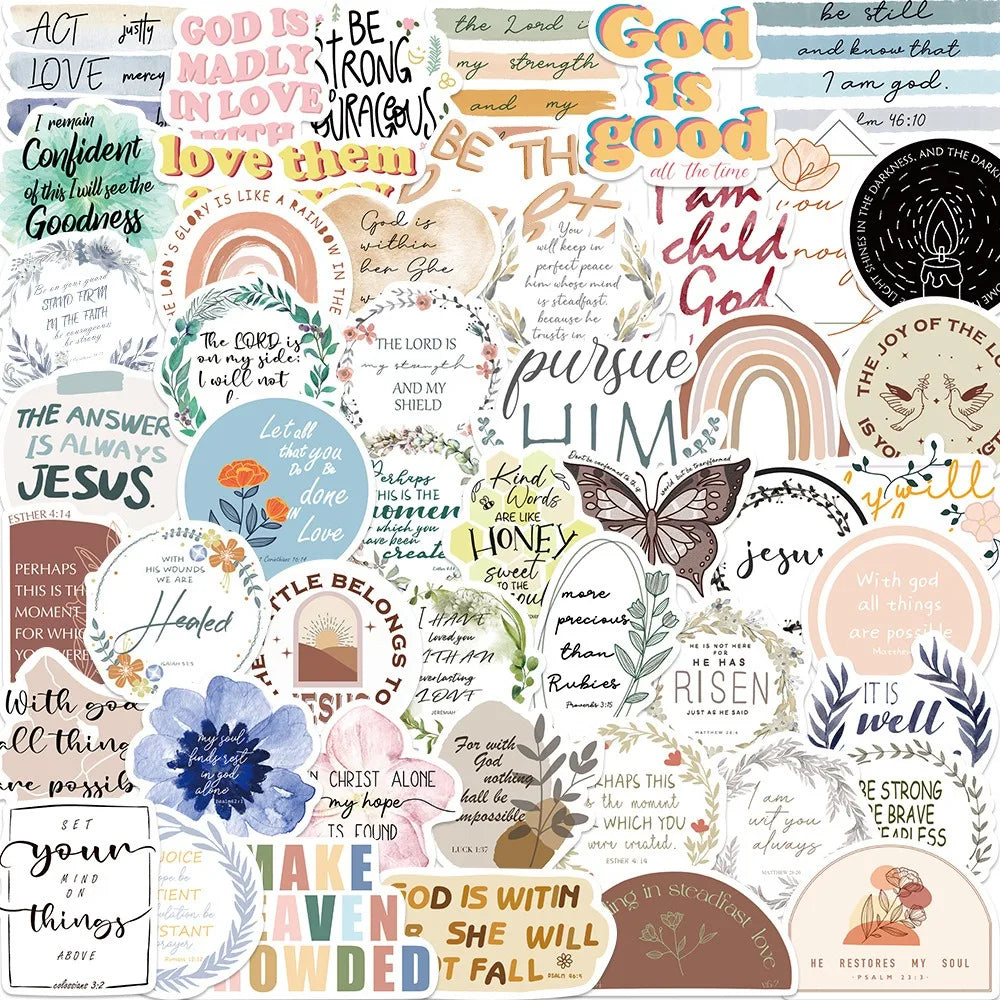 ACT justly
LOVE mercy
GOD IS
MADLY
IN LOVE
WITH
BE
STRONG
the Lord is
my strength
and my
God
is
good
all the time
be still
and know that
I am god.
46:10
I remain
Confident
of this I will see the
Goodness
love them
BE TH
I am
child
God
you
LIGHT SHINES IN THE DARKNESS, AND THE DARK
THE LORD'S GLORY IS LIKE A RAINBOW IN THE
God is
within
her She
You
will keep in
perfect peace
him whose mind
is steadfast,
because he
trusts in
Be on your guard
STAND FIRM
IN THE FAITH
be courageous
be strong
The LORD is
on my side:
I will not
THE LORD IS
my strength
AND MY
SHIELD
pursue
HIM
THE JOY OF THE L
IS YO
THE ANSWER
IS ALWAYS
JESUS.
Let all
that you
Do Be
done
IN
Love
1 Corinthians 16:14
Perhaps
THIS IS THE
moment
which you
have been
create
Kind
Words
ARE LIKE
HONEY
sweet
TO THE
soul
Don't be conformed to this world but be transformed
jesus
will
ESTHER 4:14
PERHAPS
THIS IS TH
MOMENT
FOR WHIC
YOU WERE
WITH
HIS WOUNDS
WE ARE
Healed
ISAIAH 53:5
TTLE BELONGS TO
JESUS
I HAVE
loved you
WITH AN
everlasting
LOVE
JEREMIAH
more
precious
than
Rubies
Proverbs 3:15
HE IS NOT HERE
FOR
HE HAS
RISEN
JUST AS HE SAID
MATTHEW 28:6
With god
all things
are possible
Matthew
With god
all thing
are possib
my soul
finds rest
in god
alone
Psalm62:1
CHRIST ALONE
my hope
IS FOUND
For with
God
nothing
shall be
impossible
LUCK 1:37
IT IS
well
RHAPS THIS
is the moment
WHICH YOU
were created.
ESTHER 4:14
I am
wit you
always
MATTHEW 28:20
BE STRONG
BE BRAVE
FEARLESS
SET
your
MIND
ON
things
ABOVE
colossians 3:2
OICE
hope be
TIENT
ulation be
STANT
prayer
Romans 12:12
MAKE
EAVEN
OWDED
OD IS WITIN
R SHE WILL
T FALL
PSALM 46:5
ing in steadfast love
HE RESTORES MY SOUL
-PSALM 23:3-